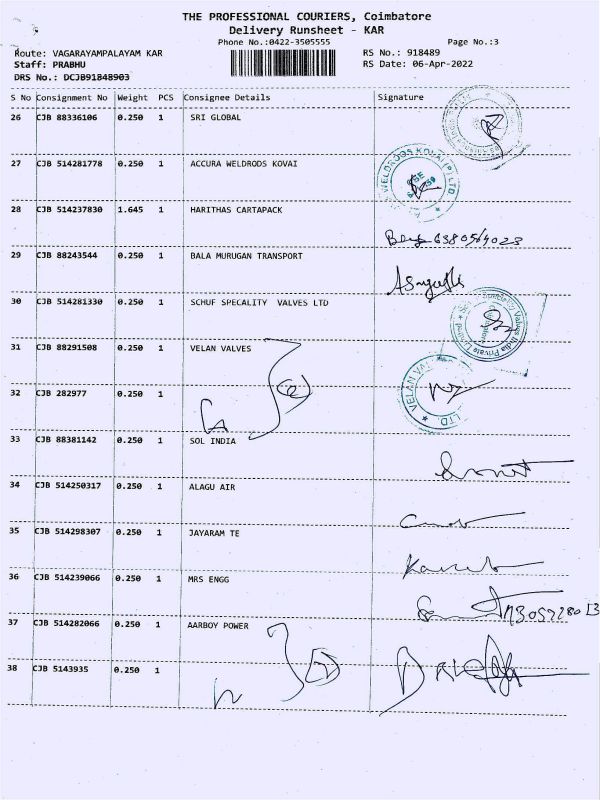 THE PROFESSIONAL COURIERS, Coimbatore
Delivery Runsheet - KAR
Phone No.:0422-3505555 Page No.:3
Route: VAGARAYAMPALAYAM KAR RS No.: 918489
Staff: PRABHU RS Date: 06-Apr-2022
DRS No.: DCJB91848903
S No Consignment No Weight PCS Consignee Details Signature
26 CJB 88336106 0.250 1 SRI GLOBAL
27 CJB 514281778 0.250 1 ACCURA WELDRODS KOVAI
WELDRODS KOVAI (P) LTD
28 CJB 514237830 1.645 1 HARITHAS CARTAPACK
29 CJB 88243544 0.250 1 BALA MURUGAN TRANSPORT
30 CJB 514281330 0.250 1 SCHUF SPECALITY VALVES LTD
Valves India Private Limited
31 CJB 88291508 0.250 1 VELAN VALVES
32 CJB 282977 0.250 1
VELAN VAL LTD.
33 CJB 88381142 0.250 1 SOL INDIA
34 CJB 514250317 0.250 1 ALAGU AIR
35 CJB 514298307 0.250 1 JAYARAM TE
36 CJB 514239066 0.250 1 MRS ENGG
37 CJB 514282066 0.250 1 AARBOY POWER
38 CJB 5143935 0.250 1